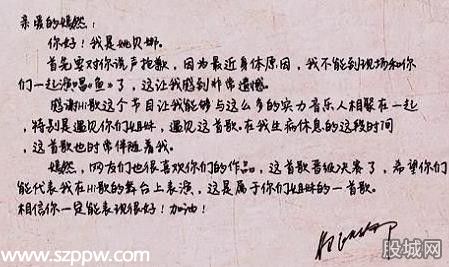 亲爱的嫣然：
你好！我是姚贝娜。
首先要对你说声抱歉，因为最近身体原因，我不能到现场和你
们一起演唱《鱼》了，这让我感到非常遗憾。
感谢Hi歌这个节目让我能够与这么多的实力音乐人相聚在一起
，特别是遇见你们姐妹，遇见这首歌。在我生病休息的这段时间
，这首歌也时常伴随着我。
嫣然，网友们也很喜欢你们的作品，这首歌晋级决赛了，希望你们
能代表我在Hi歌的舞台上表演，这是属于你们姐妹的一首歌。
相信你一定能表现很好！加油！
www.szppw.com
股城网